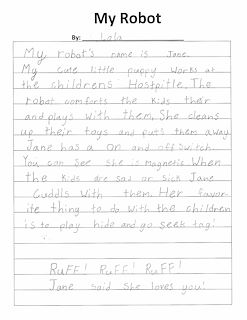 My Robot
By: Lola
My robot's name is Jane.
My cute little puppy works at
the childrens Hostpitle. The
robot comforts the kids their
and plays with them. She cleans
up their toys and puts them away.
Jane has a on and off switch.
You can see she is magnetic. When
the kids are sad or sick Jane
Cuddls with them. Her favor-
ite thing to do with the children
is to play hide and go seek tag!
RUFF! RUFF! RUFF!
Jane said She loves you!